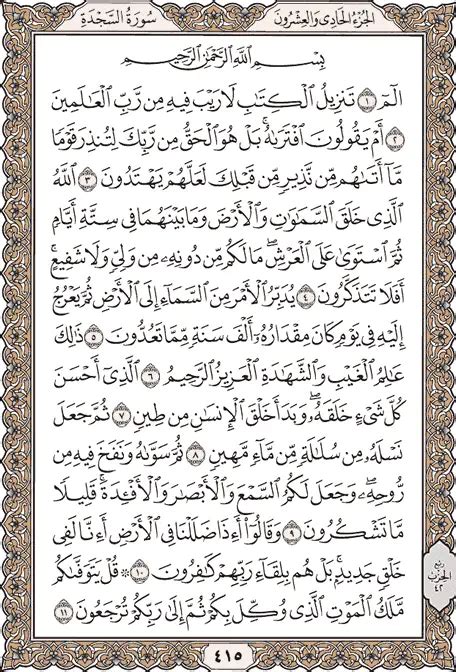 الجزء الحادي والعشرون
سورة السجدة
بِسْمِ اللَّهِ الرَّحْمَٰنِ الرَّحِيمِ
الٓمٓ ١ تَنزِيلُ الْكِتَٰبِ لَا رَيْبَ فِيهِ مِن رَّبِّ الْعَٰلَمِينَ
٢ أَمْ يَقُولُونَ افْتَرَىٰهُ ۚ بَلْ هُوَ الْحَقُّ مِن رَّبِّكَ لِتُنذِرَ قَوْمًا
مَّآ أَتَىٰهُم مِّن نَّذِيرٍ مِّن قَبْلِكَ لَعَلَّهُمْ يَهْتَدُونَ ٣ اللَّهُ
الَّذِى خَلَقَ السَّمَٰوَٰتِ وَالْأَرْضَ وَمَا بَيْنَهُمَا فِى سِتَّةِ أَيَّامٍ
ثُمَّ اسْتَوَىٰ عَلَى الْعَرْشِ ۖ مَا لَكُم مِّن دُونِهِۦ مِن وَلِىٍّ وَلَا شَفِيعٍ ۚ
أَفَلَا تَتَذَكَّرُونَ ٤ يُدَبِّرُ الْأَمْرَ مِنَ السَّمَآءِ إِلَى الْأَرْضِ ثُمَّ يَعْرُجُ
إِلَيْهِ فِى يَوْمٍ كَانَ مِقْدَارُهُۥٓ أَلْفَ سَنَةٍ مِّمَّا تَعُدُّونَ ٥ ذَٰلِكَ
عَٰلِمُ الْغَيْبِ وَالشَّهَٰدَةِ الْعَزِيزُ الرَّحِيمُ ٦ الَّذِىٓ أَحْسَنَ
كُلَّ شَىْءٍ خَلَقَهُۥ ۖ وَبَدَأَ خَلْقَ الْإِنسَٰنِ مِن طِينٍ ٧ ثُمَّ جَعَلَ
نَسْلَهُۥ مِن سُلَٰلَةٍ مِّن مَّآءٍ مَّهِينٍ ٨ ثُمَّ سَوَّىٰهُ وَنَفَخَ فِيهِ مِن
رُّوحِهِۦ ۖ وَجَعَلَ لَكُمُ السَّمْعَ وَالْأَبْصَٰرَ وَالْأَفْـِٔدَةَ ۚ قَلِيلًا
مَّا تَشْكُرُونَ ٩ وَقَالُوٓا۟ أَءِذَا ضَلَلْنَا فِى الْأَرْضِ أَءِنَّا لَفِى
خَلْقٍ جَدِيدٍۭ ۚ بَلْ هُم بِلِقَآءِ رَبِّهِمْ كَٰفِرُونَ ١٠ ۞ قُلْ يَتَوَفَّىٰكُم
مَّلَكُ الْمَوْتِ الَّذِى وُكِّلَ بِكُمْ ثُمَّ إِلَىٰ رَبِّكُمْ تُرْجَعُونَ ١١
ربع
الحزب
٤٢
٤١٥